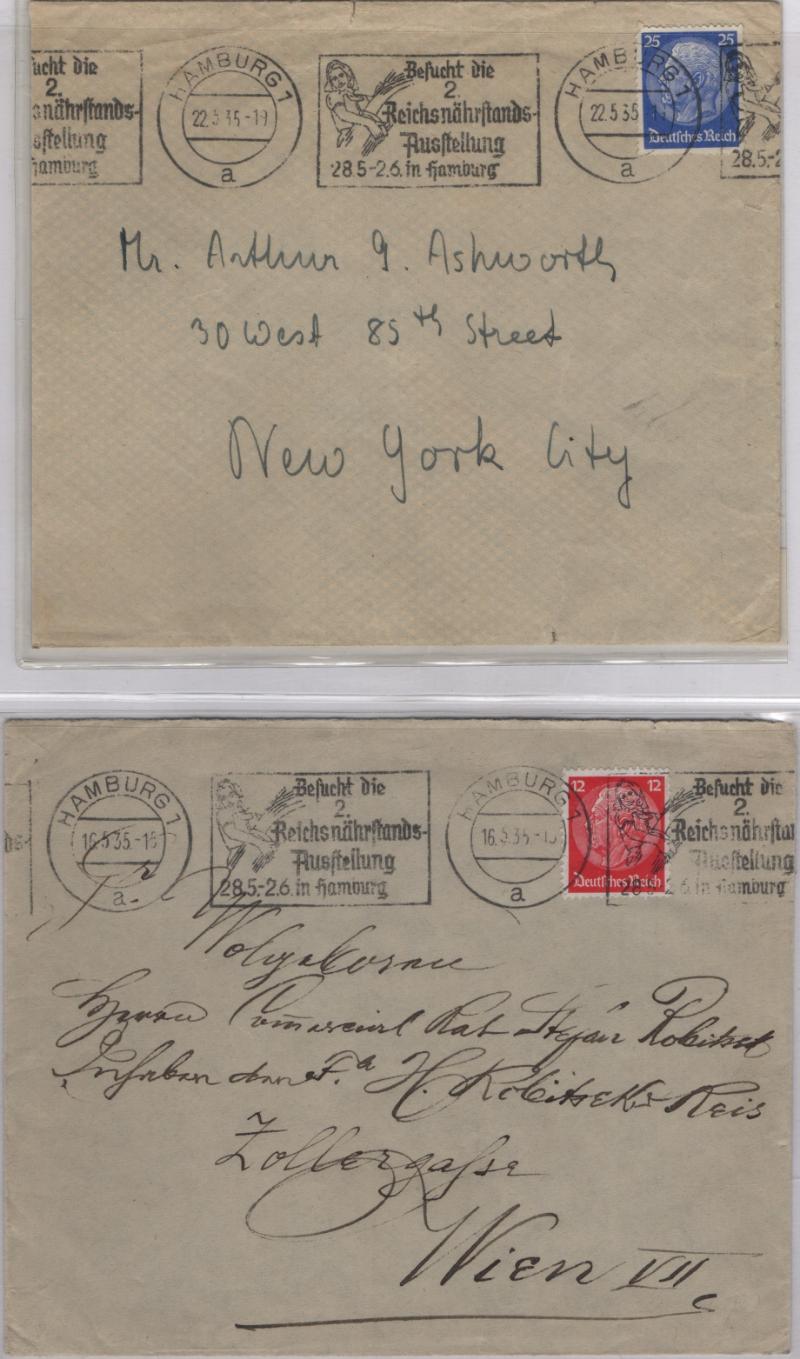 sucht die
2.
snährstands-
sstellung
Hamburg
HAMBURG 1
22.5.35-19
a
Besucht die
2.
Reichsnährstands-
Ausstellung
28.5-2.6. in Hamburg
HAMBURG 1
22.5.35
a
25 25
Deutsches Reich
28.5-2
Mr. Arthur G. Ashworth
30 West 85th Street
New York City
ds-
HAMBURG 1
16.5.35-
a
Besucht die
2.
Reichsnährstands-
Ausstellung
28.5.-2.6. in Hamburg
HAMBURG 1
16.5.35-
a
12 12
Deutsches Reich
Besucht die
2.
Reichsnährsta
Ausstellung
28.5-2.6. in Hamburg
Wolgeboren
Herrn Commercial Rat Stefan Robitsek
Inhaber der Fa H. Robitsek Reis
Zollergasse
Wien VII